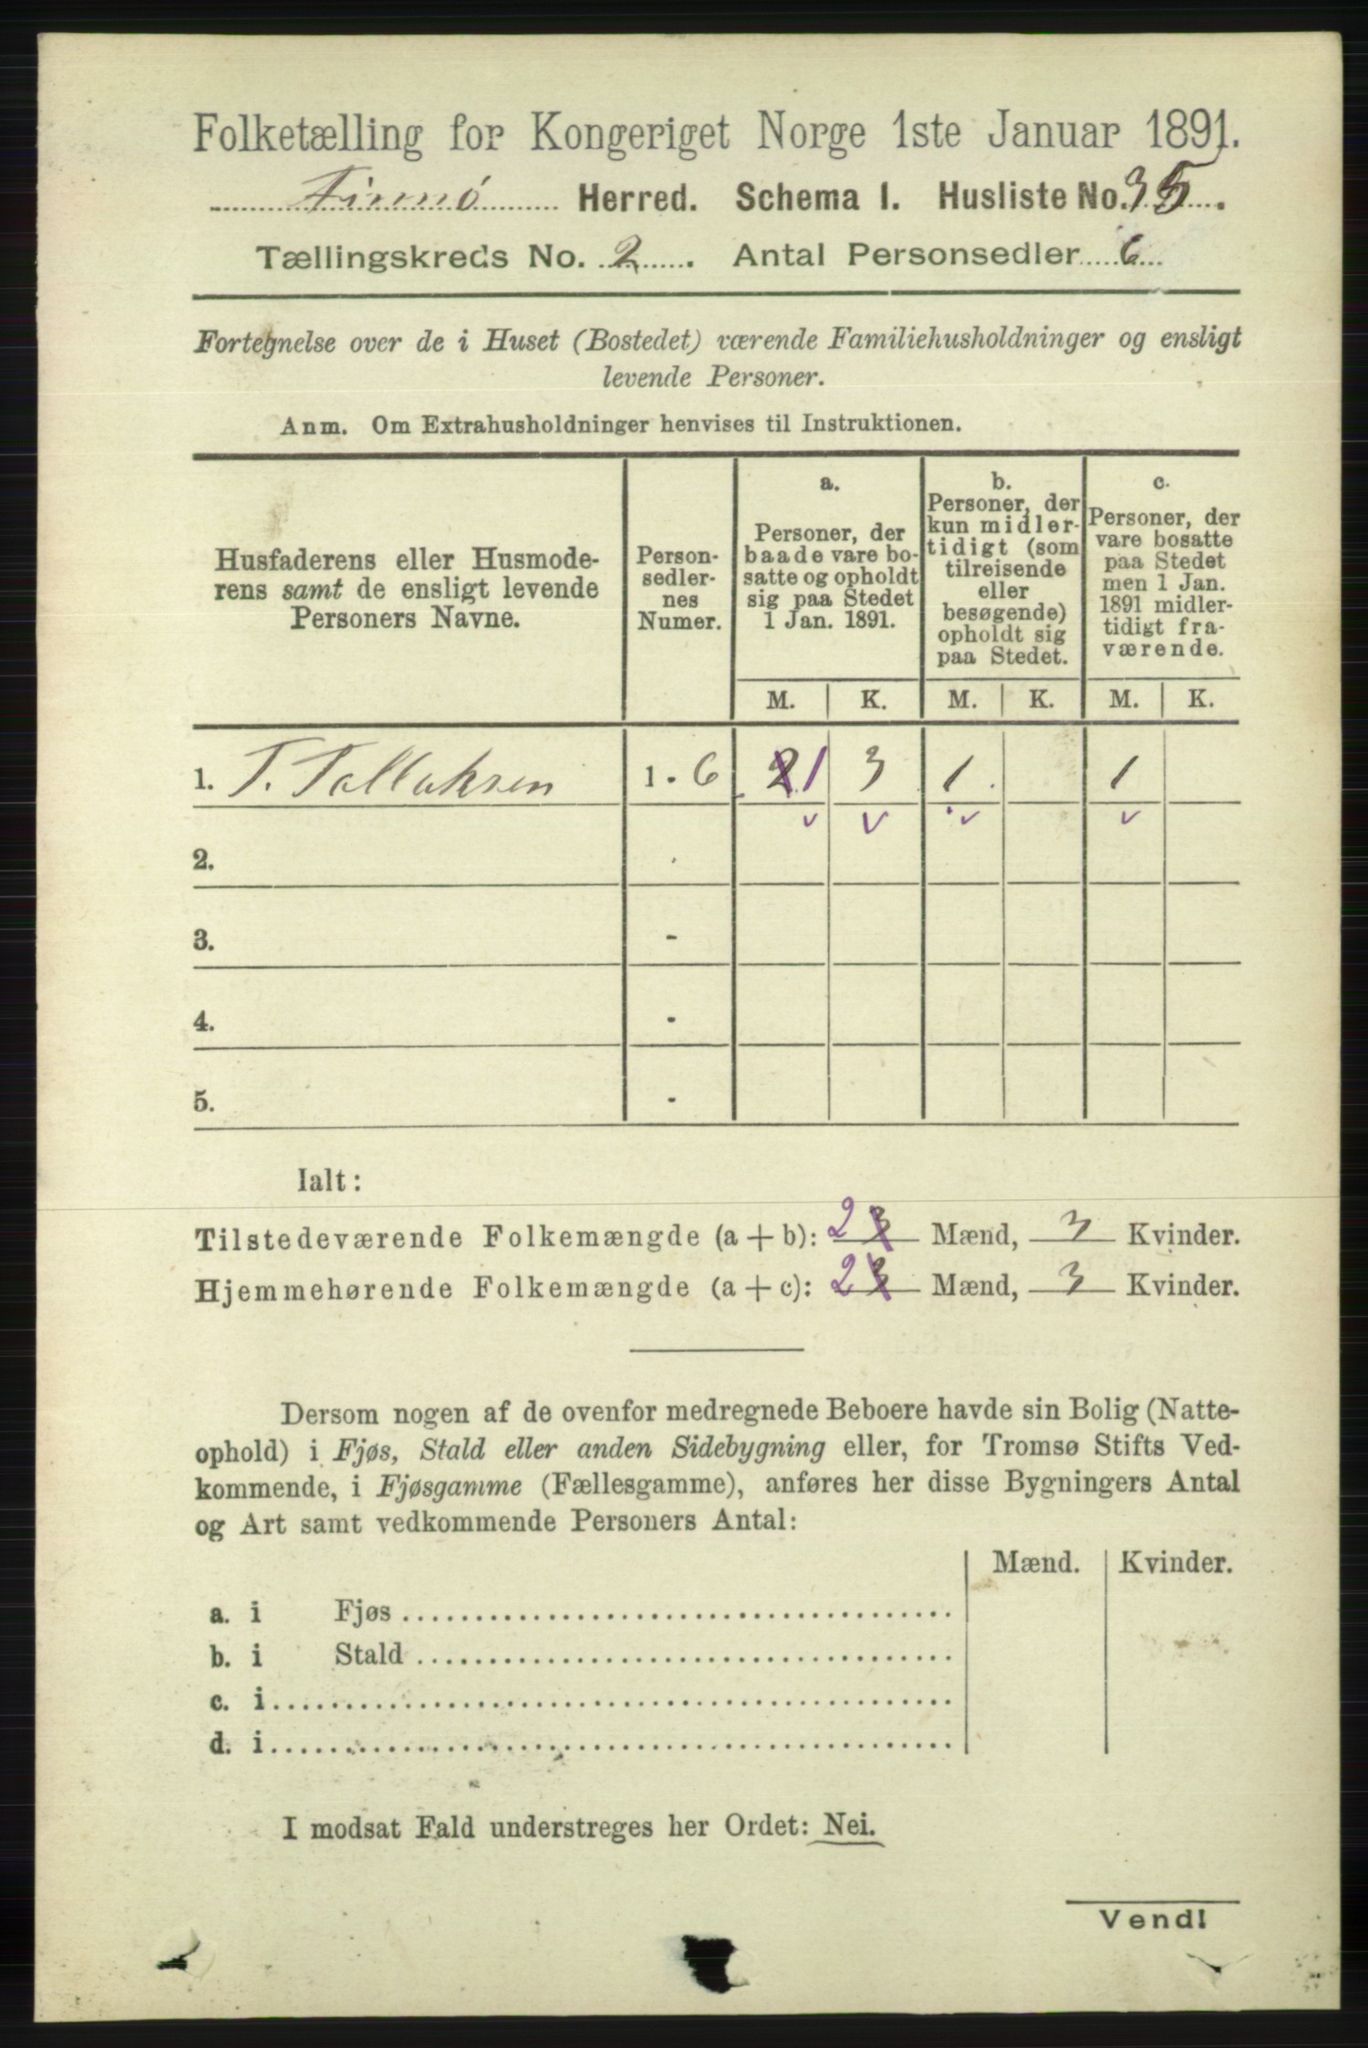 Folketælling for Kongeriget Norge 1ste Januar 1891.
Finnø Herred. Schema I. Husliste No. 35.
Tællingskreds No. 2. Antal Personsedler 6
Fortegnelse over de i Huset (Bostedet) værende Familiehusholdninger og ensligt
levende Personer.
Anm. Om Extrahusholdninger henvises til Instruktionen.
Husfaderens eller Husmode-
rens samt de ensligt levende
Personers Navne.
Person-
sedler-
nes
Numer.
a.
Personer, der
baade vare bo-
satte og opholdt
sig paa Stedet
1 Jan. 1891.
b.
Personer, der
kun midler-
tidigt (som
tilreisende
eller
besøgende)
opholdt sig
paa Stedet.
c.
Personer, der
vare bosatte
paa Stedet
men 1 Jan.
1891 midler-
tidigt fra-
værende.
M. K. M. K. M. K.
1. T. Tollaksen 1 - 6 2 1 3 1 1
2. -
3. -
4. -
5. -
Ialt:
Tilstedeværende Folkemængde (a + b): 2 3 Mænd, 3 Kvinder.
Hjemmehørende Folkemængde (a + c): 2 3 Mænd, 3 Kvinder.
Dersom nogen af de ovenfor medregnede Beboere havde sin Bolig (Natte-
ophold) i Fjøs, Stald eller anden Sidebygning eller, for Tromsø Stifts Ved-
kommende, i Fjøsgamme (Fællesgamme), anføres her disse Bygningers Antal
og Art samt vedkommende Personers Antal:
Mænd. Kvinder.
a. i Fjøs
b. i Stald
c. i
d. i
I modsat Fald understreges her Ordet: Nei.
Vend!